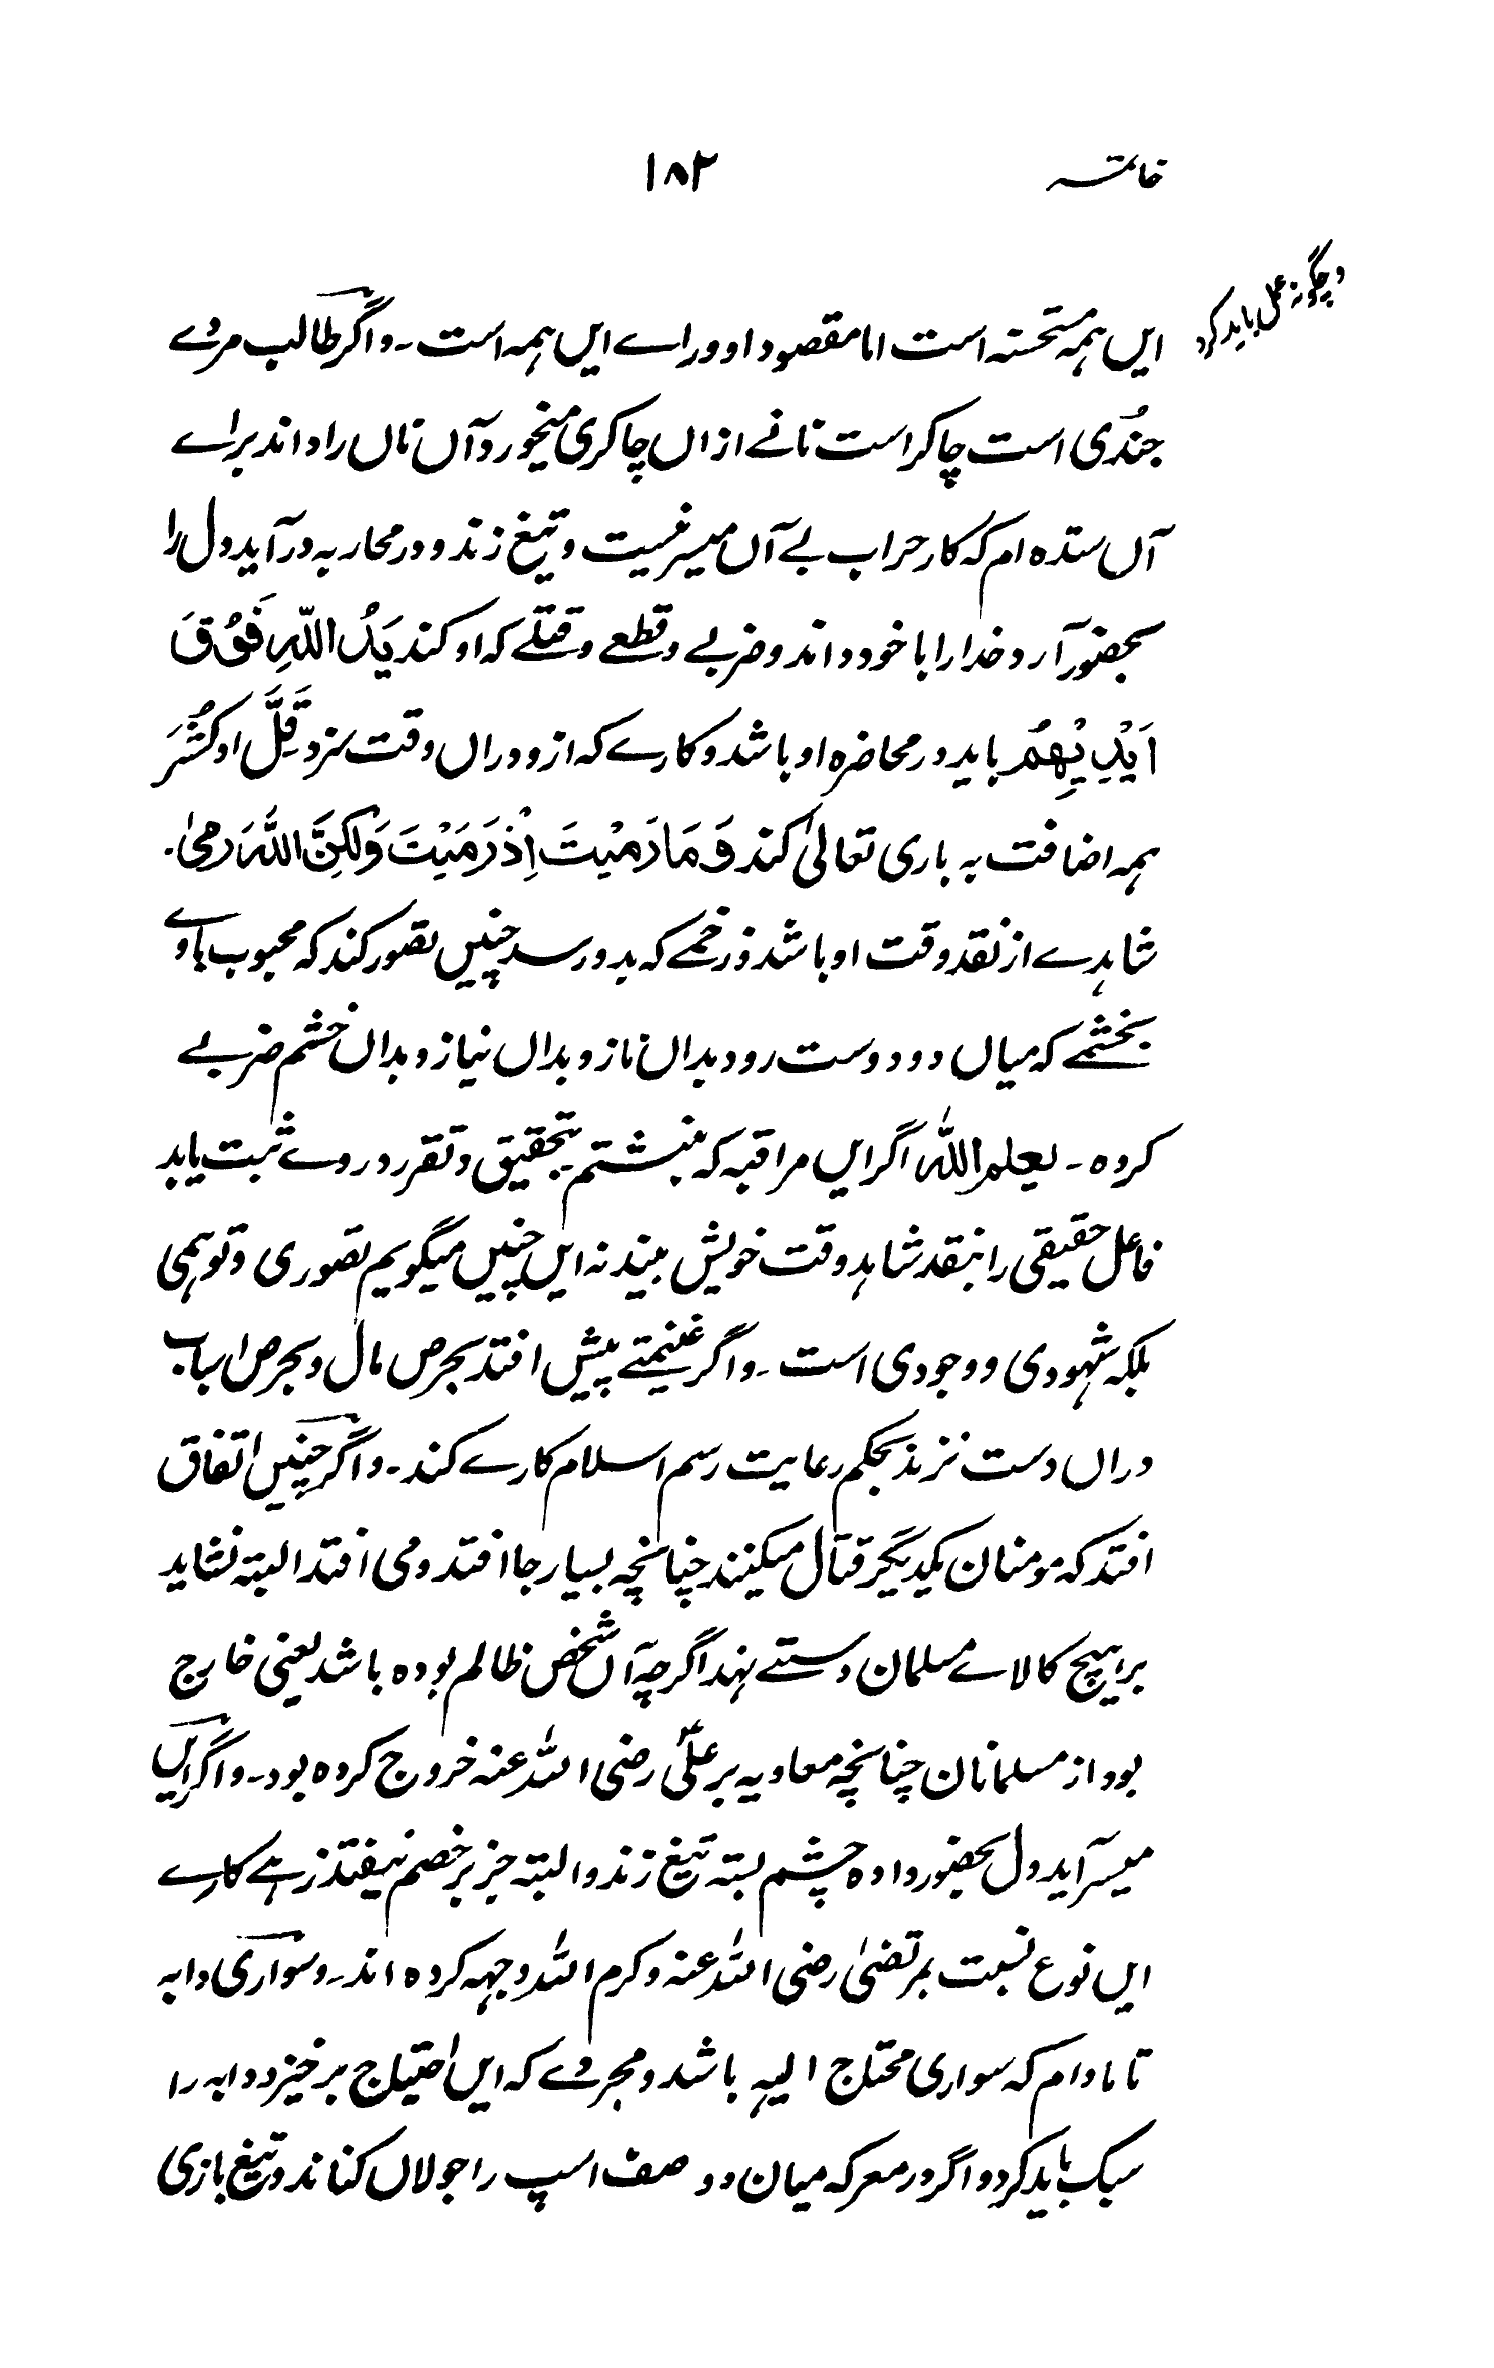 خاتمہ ۱۸۲
و چگونہ عمل باید کرد
ایں ہمہ مستحسنہ است اما مقصود او وراے ایں ہمہ است ۔ واگر طالب مردے
جُندی است چاکر است نانے ازاں چاکری میخورد و آں ناں را داند براے
آں ستدہ ام کہ کار حراب بے آں میسر نیست و تیغ زند و در محاربہ در آید و دل را
بحضور آرد و خدا را با خود داند و ضربے و قطعے و قتلے کہ او کند یَدُ اللهِ فَوْقَ
اَیْدِیْهِمْ باید در محاضرہ او باشد و کارے کہ ازو دراں وقت سزد قَلَّ او کَثُرَ
ہمہ اضافت بہ باری تعالیٰ کند وَ مَا رَمَیْتَ اِذْ رَمَیْتَ وَلٰکِنَّ اللهَ رَمیٰ۔
شاہدے از نقد وقت او باشد و زخمے کہ بدو رسد چنیں تصور کند کہ محبوب باوے
بخشمے کہ میاں دو دوست رود بداں ناز و بداں نیاز و بداں خشم ضربے
کردہ ۔ یعلم الله اگر ایں مراقبہ کہ نبشتم بتحقیق و تقرر در وے ثبت یابد
فاعل حقیقی را بنقد شاہد وقت خویش بیند نہ ایں چنیں میگویم تصوری و توہمی
بلکہ شہودی و وجودی است ۔ واگر غنیمتے پیش افتد بحرص مال و بحرص اسباب
دراں دست نزند بحکم رعایت رسم اسلام کارے کند ۔ واگر چنیں اتفاق
افتد کہ مومنان یکدیگر قتال میکنند چنانچہ بسیار جا افتد و می افتد البتہ نشاید
بر ہیچ کالاے مسلمان دستے نہد اگرچہ آں شخص ظالم بودہ باشد یعنی خارج
بود از مسلمانان چنانچہ معاویہ بر علیؓ رضی اللہ عنہ خروج کردہ بود ۔ واگر ایں
میسّر آید دل بحضور دادہ چشم بستہ تیغ زند و البتہ جز بر خصم نیفتد زہے کارے
ایں نوع نسبت بمرتضیٰ رضی اللہ عنہ و کرم اللہ وجہہ کردہ اند ۔ و سواری دابہ
تا مادام کہ سواری محتاج الیہ باشد و مجردے کہ ایں احتیاج برخیزد دابہ را
سبک باید کرد و اگر در معرکہ میان دو صف اسپ را جولاں کناند و تیغ بازی